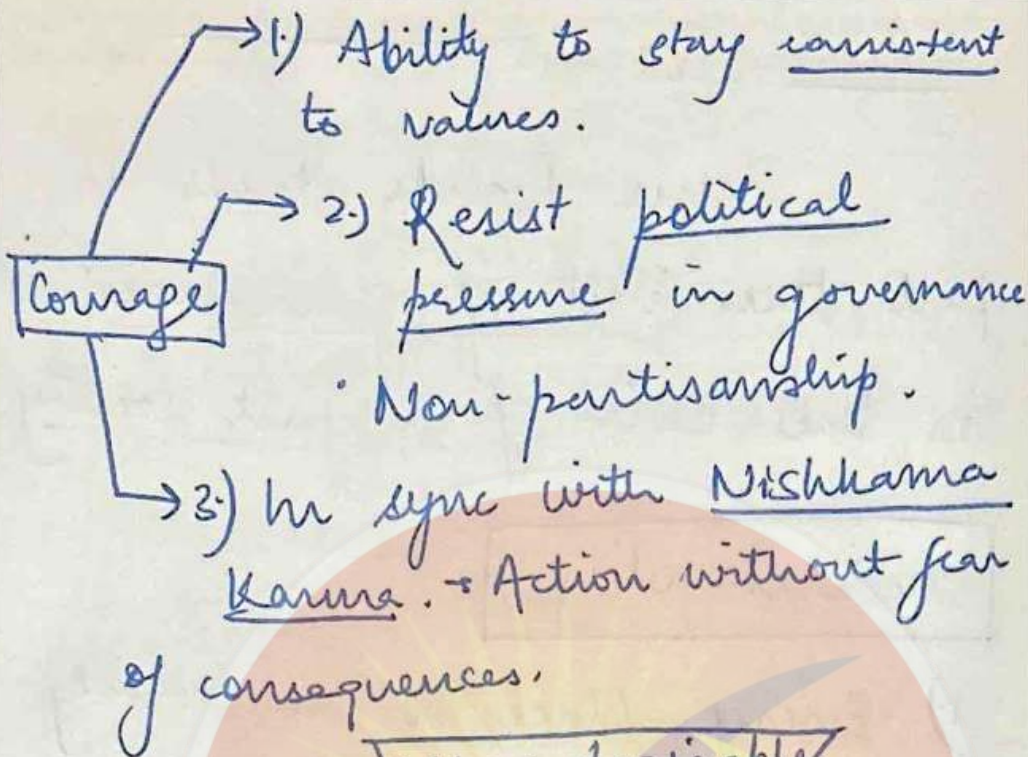 1.) Ability to stay consistent
to values.
2.) Resist political
Courage
pressure in governance
· Non-partisanship.
3.) In sync with Nishkama
Karma. → Action without fear
of consequences.